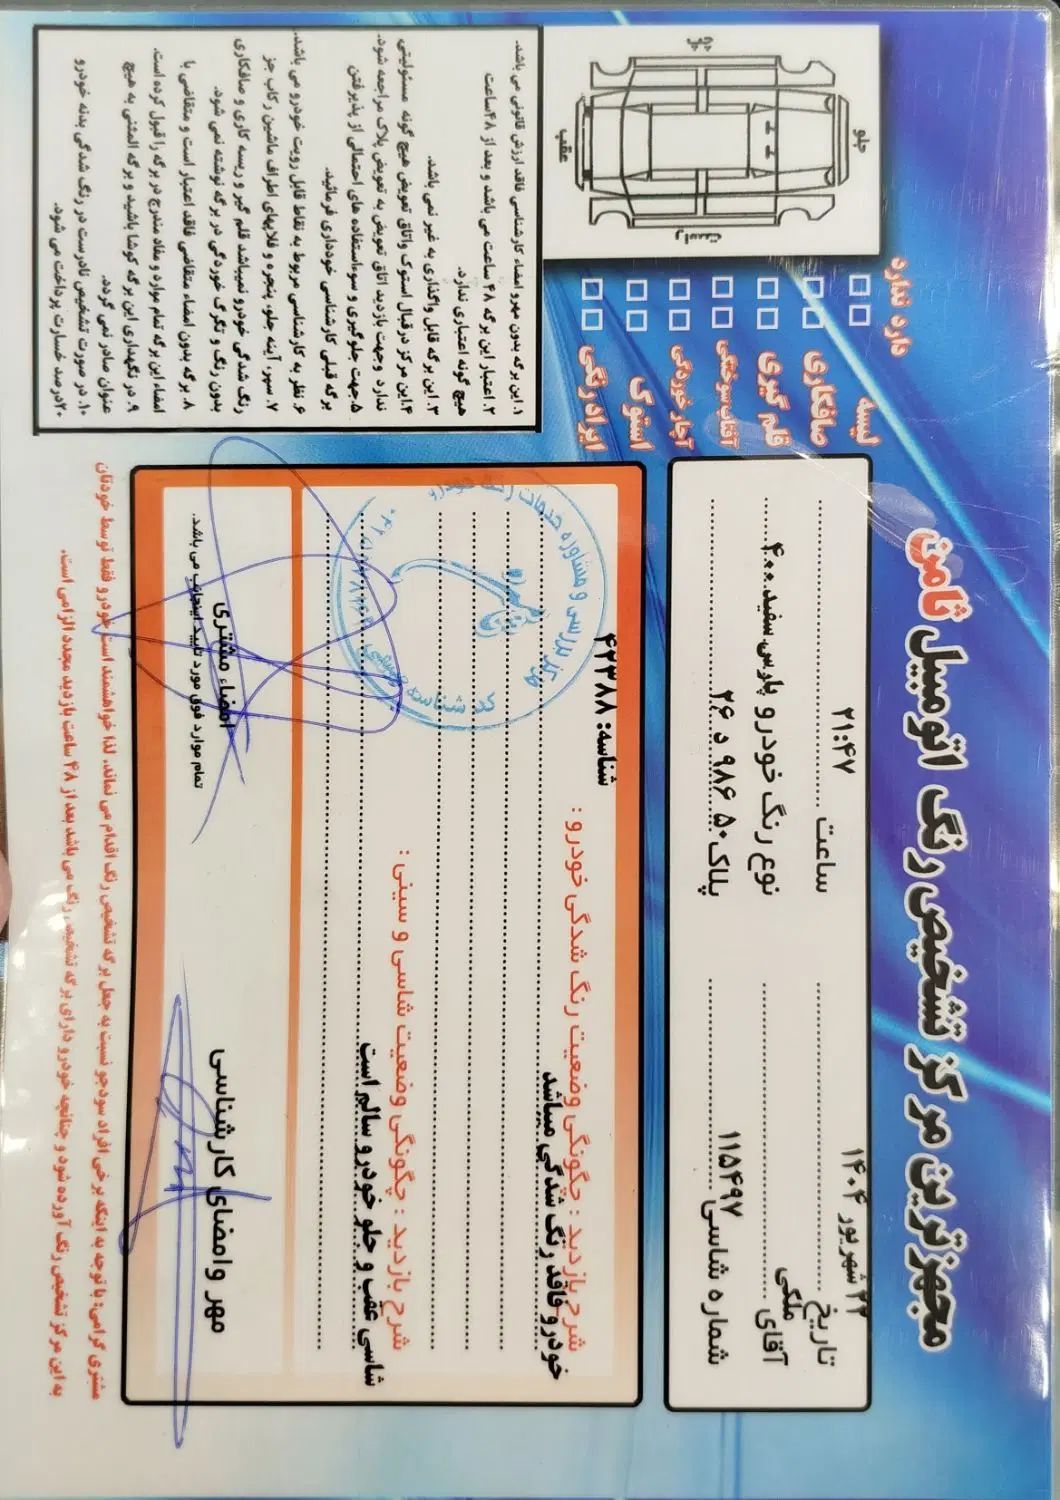 مجهزترین مرکز تشخیص رنگ اتومبیل ثامن
تاریخ ۲۲ شهریور ۱۴۰۴
ساعت ۲۱:۴۷
آقای ملکی
نوع رنگ خودرو پارس سفید ۴۰۰
شماره شاسی ۱۱۵۴۹۷
پلاک ۵۰ ۹۸۶ د ۲۶
شناسه: ۴۲۳۸۸
شرح بازدید : چگونگی وضعیت رنگ شدگی خودرو :
خودرو فاقد رنگ شدگی میباشد
شرح بازدید : چگونگی وضعیت شاسی و سینی :
شاسی عقب و جلو خودرو سالم است
مهر وامضای کارشناسی
امضاء مشتری
تمام موارد فوق مورد تایید اینجانب می باشد.
مشتری گرامی: با توجه به اینکه برخی افراد سودجو نسبت به جعل برگه تشخیص رنگ اقدام می نماند. لذا خواهشمند است خودرو فقط توسط خودتان
به این مرکز تشخیص رنگ آورده شود و چنانچه خودرو دارای برگه تشخیص رنگ می باشد بعد از ۴۸ ساعت بازدید مجدد الزامی است.
دارد ندارد
لیسه
صافکاری
قلم گیری
آفتاب سوختگی
آچار خوردگی
استوک
ایراد رنگی
چپ
جلو
عقب
راست
۱. این برگه بدون مهر و امضاء کارشناسی فاقد ارزش قانونی می باشد.
۲. اعتبار این برگه ۴۸ ساعت می باشد و بعد از ۴۸ساعت
هیچ گونه اعتباری ندارد.
۳. این برگه قابل واگذاری به غیر نمی باشد.
۴.این مرکز در قبال استوک واتاق تعویض هیچ گونه مسئولیتی
ندارد وجهت بازدید اتاق تعویض به تعویض پلاک مراجعه شود.
۵.جهت جلوگیری و سوءاستفاده های احتمالی از پذیرفتن
برگه قبلی کارشناسی خودداری فرمائید.
۶. نظر به کارشناسی مربوط به نقاط قابل رویت خودرو می باشد.
۷. سپر، آینه جلو، پنجره و فلاپهای اطراف ماشین رکاب جز
رنگ شدگی خودرو نمیباشد قلم گیر و ریسه کاری و صافکاری
بدون رنگ و تگرگ خوردگی در برگه نوشته نمی شود.
۸. برگه بدون امضاء متقاضی فاقد اعتبار است و متقاضی با
امضاء این برگه تمام موارد و مفاد مندرج در برگه را قبول کرده است.
۹. در نگهداری این برگه کوشا باشید و برگه المثنی به هیچ
عنوان صادر نمی گردد.
۱۰. در صورت تشخیص نادرست در رنگ شدگی بدنه خودرو
۲۰درصد خسارت پرداخت می شود.
مرکز بررسی و مشاوره خدمات رنگ خودرو